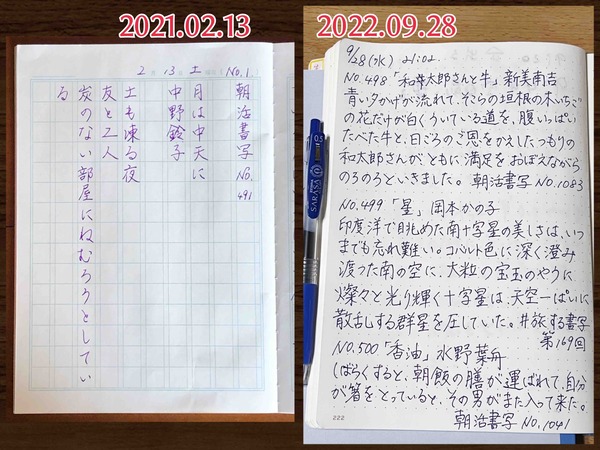 2021.02.13
2 13 土 No.1
朝活書写 No.491
月は中天に
中野鈴子
土も凍る夜
友と二人
炭のない部屋にねむろうとしてい
る
2022.09.28
9/28(水) 21:02.
No.498「和太郎さんと牛」新美南吉
青い夕かげが流れて、そこらの垣根の木いちご
の花だけが白くういている道を、腹いっぱい
たべた牛と、日ごろのご恩をかえしたつもりの
和太郎さんが、ともに満足をおぼえながら
のろのろといきました。朝活書写 No.1083
No.499「星」岡本かの子
印度洋で眺めた南十字星の美しさは、いつ
までも忘れ難い。コバルト色に深く澄み
渡った南の空に、大粒の宝玉のやうに
燦々と光り輝く十字星は、天空一ぱいに
散乱する群星を圧していた。#旅する書写
第169回
No.500「香油」水野葉舟
しばらくすると、朝飯の膳が運ばれて、自分
が箸をとっていると、その男がまた入って来た。
朝活書写 No.1041
222
0.5
SARASA